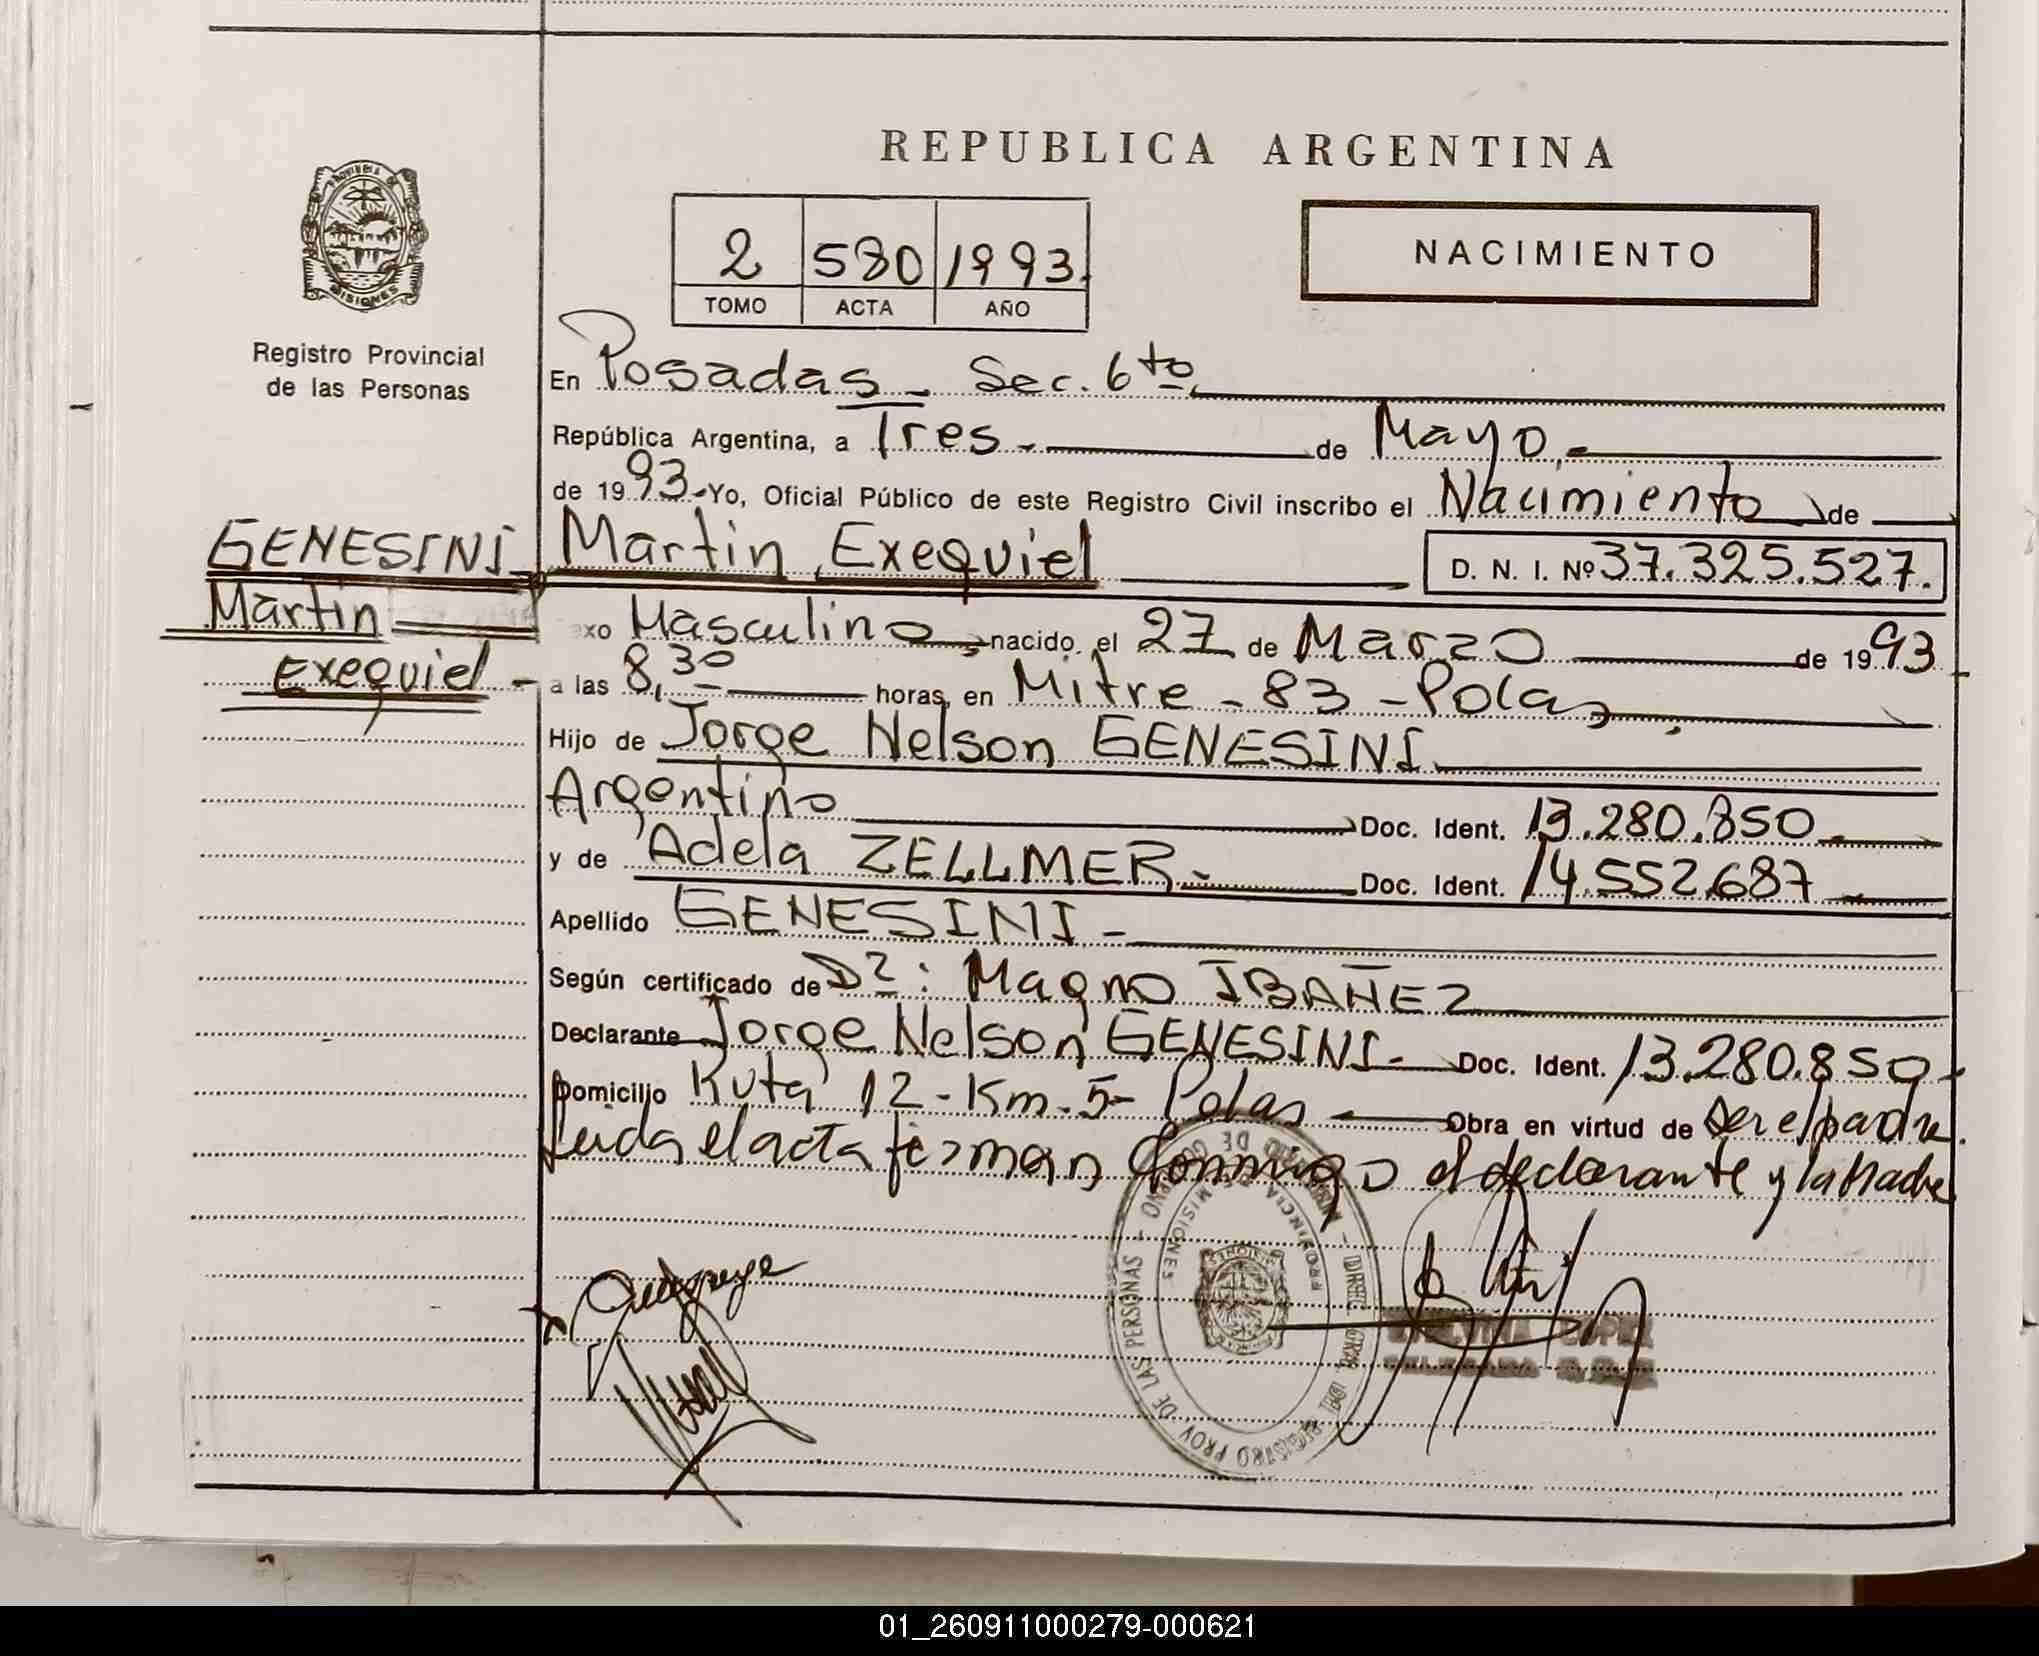 REPUBLICA ARGENTINA
2 580 1993.
TOMO ACTA AÑO
NACIMIENTO
PROVINCIA DE MISIONES
Registro Provincial
de las Personas
En Posadas - Sec. 6to
República Argentina, a Tres.- de Mayo.-
de 1993.- Yo, Oficial Público de este Registro Civil inscribo el Nacimiento de
GENESINI Martin Exequiel D. N. I. Nº 37.325.527.
Martin
Exequiel -
exo Masculino nacido el 27 de Marzo de 1993
a las 8,30 horas, en Mitre - 83 - Pdas
Hijo de Jorge Nelson GENESINI
Argentino Doc. Ident. 13.280.850
y de Adela ZELLMER.- Doc. Ident. 14.552.687
Apellido GENESINI -
Según certificado de Dr: Magno IBAÑEZ
Declarante Jorge Nelson GENESINI - Doc. Ident. 13.280.850
Domicilio Ruta 12 - Km. 5 - Pdas Obra en virtud de ser el padre.
Leida el acta firman conmigo el declarante y la Madre
DIREC. GRAL. DEL REGISTRO PROV. DE LAS PERSONAS
PROVINCIA DE MISIONES
01_260911000279-000621